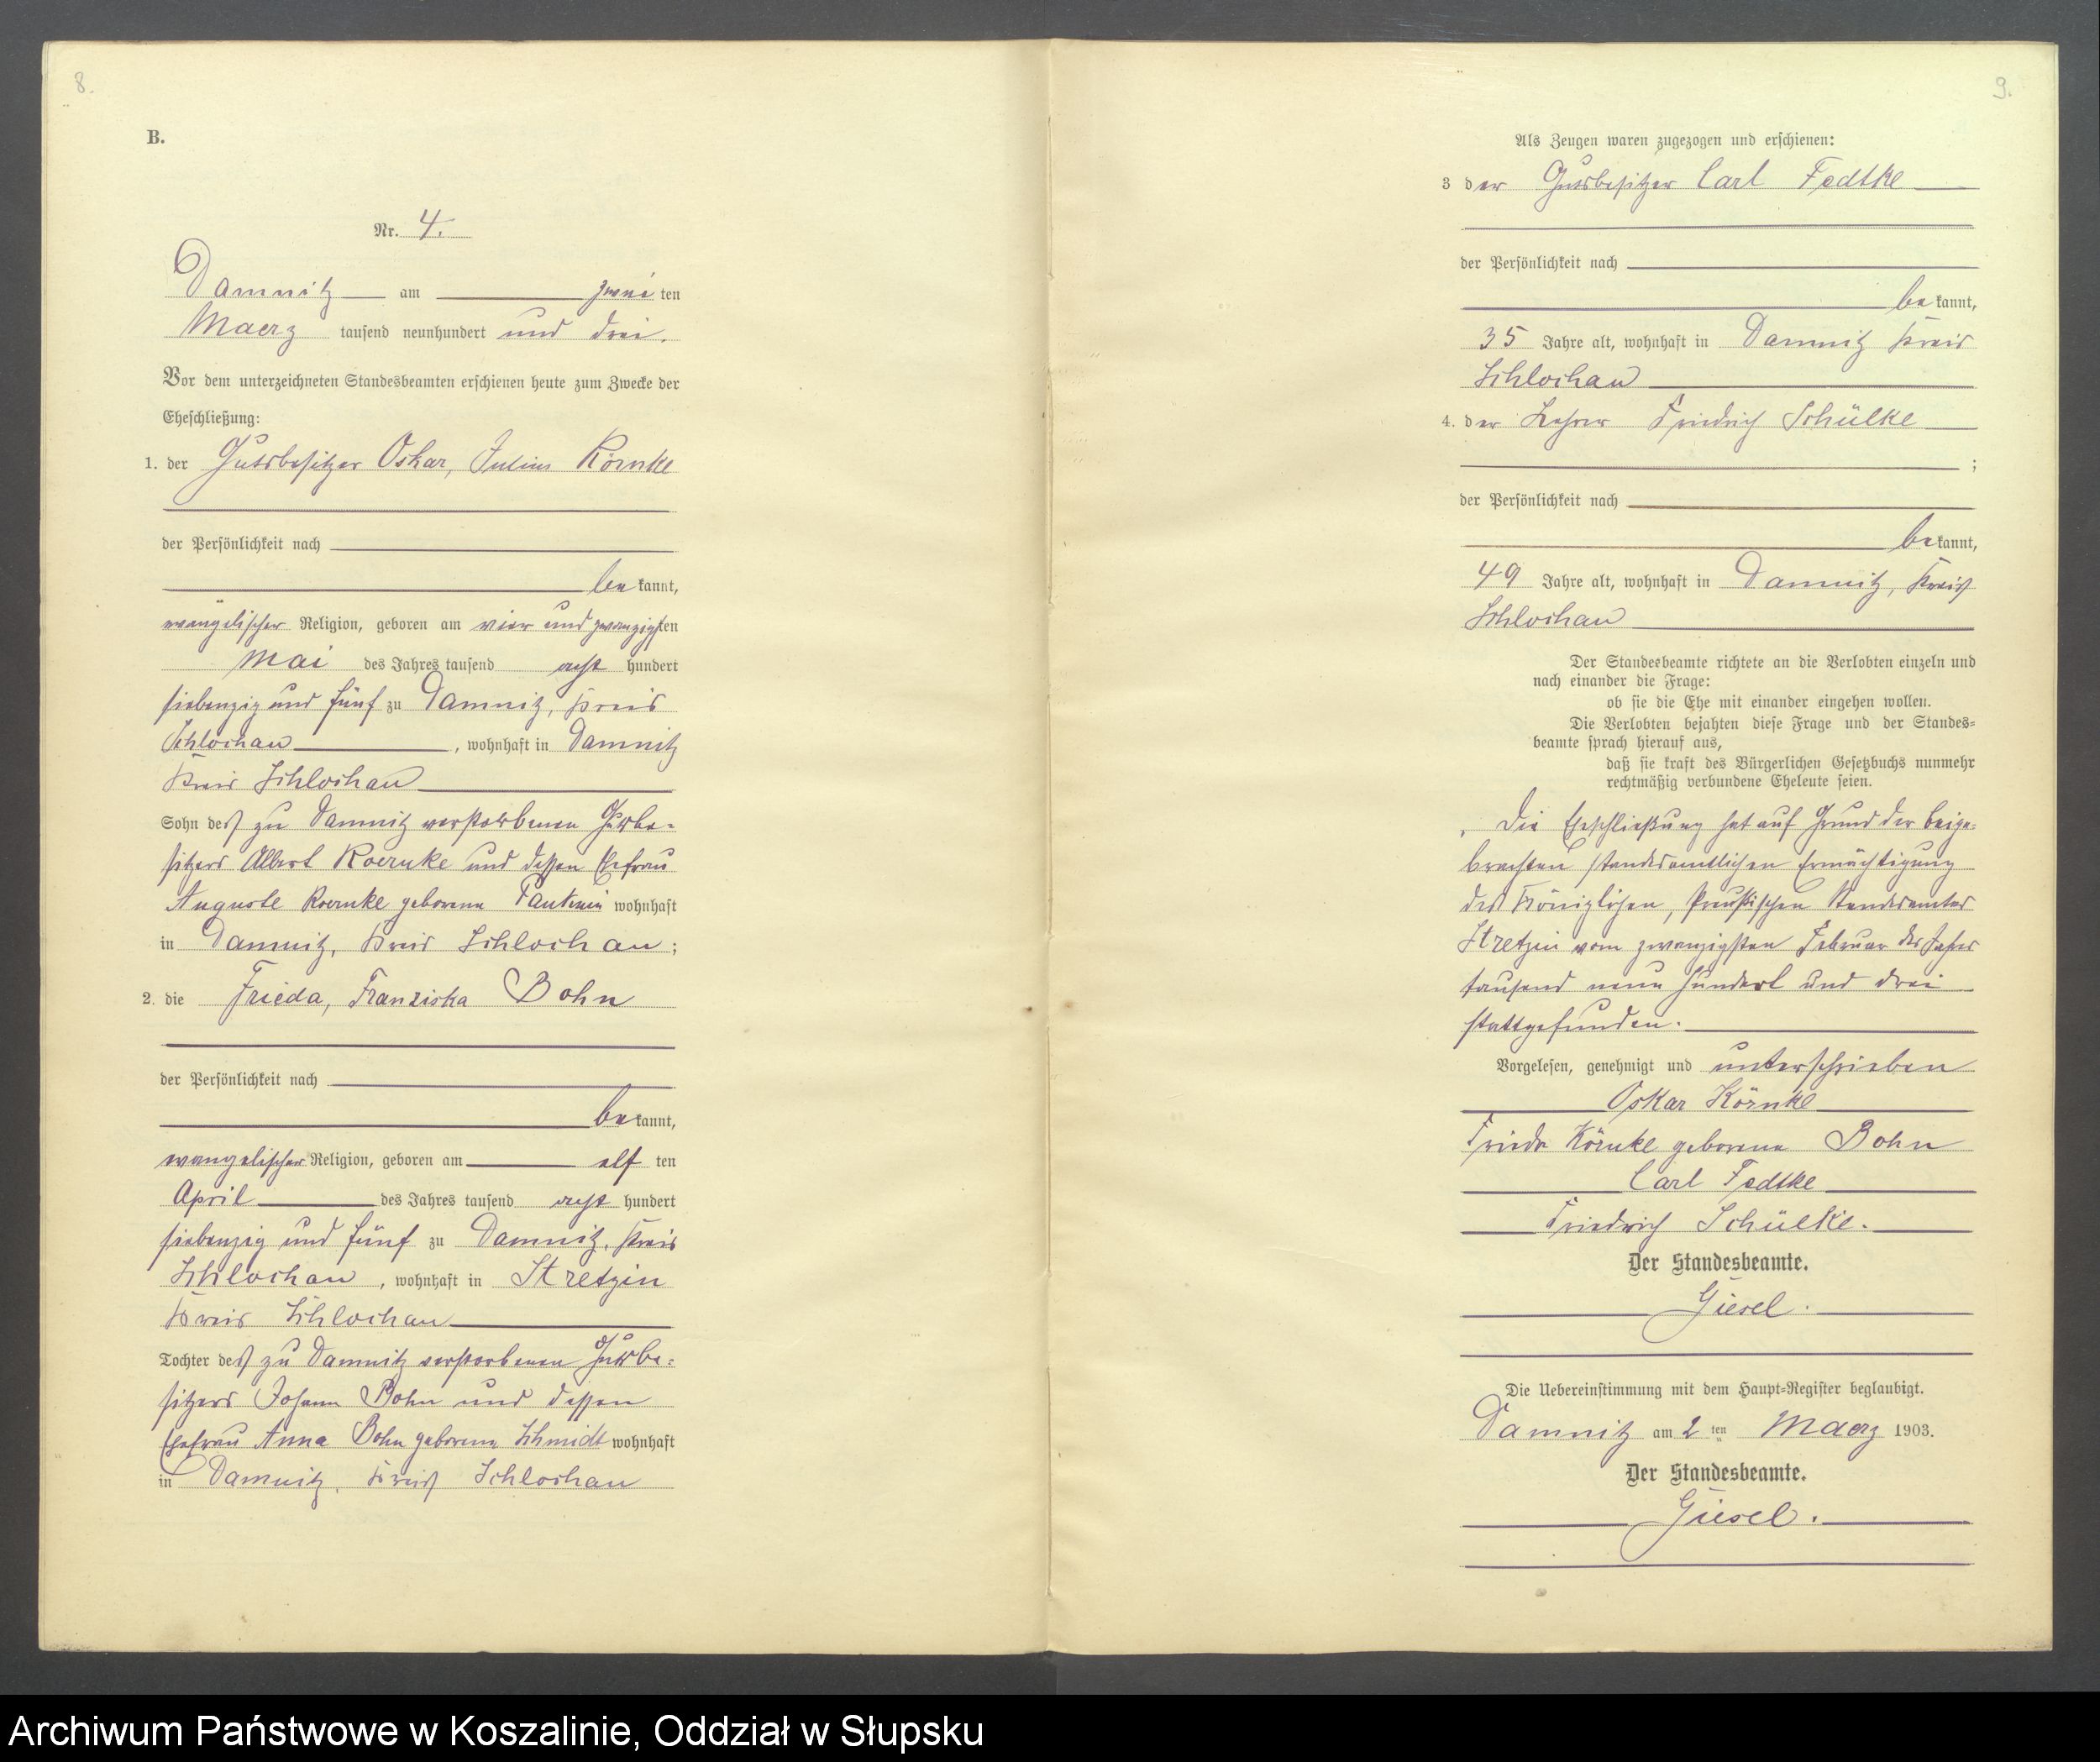 8.
B.
Nr. 4.
Damnitz am zweiten
Maerz tausend neunhundert und drei.
Vor dem unterzeichneten Standesbeamten erschienen heute zum Zwecke der
Eheschließung:
1. der Gutsbesitzer Oskar, Julius Körnke
der Persönlichkeit nach
bekannt,
evangelischer Religion, geboren am vier und zwanzigsten
Mai des Jahres tausend acht hundert
siebenzig und fünf zu Damnitz, Kreis
Schlochau, wohnhaft in Damnitz
Kreis Schlochau
Sohn des zu Damnitz verstorbenen Gutsbe-
sitzers Albert Koernke und dessen Ehefrau
Auguste Koernke geborene wohnhaft
in Damnitz, Kreis Schlochau;
2. die Frieda, Franziska Bohn
der Persönlichkeit nach
bekannt,
evangelischer Religion, geboren am elften
April des Jahres tausend acht hundert
siebenzig und fünf zu Damnitz, Kreis
Schlochau, wohnhaft in Stretzin
Kreis Schlochau
Tochter des zu Damnitz verstorbenen Gutsbe-
sitzers Johann Bohn und dessen
Ehefrau Anna Bohn geborene Schmidt wohnhaft
in Damnitz, Kreis Schlochau
9.
Als Zeugen waren zugezogen und erschienen:
3 der Gutsbesitzer Carl Fedtke
der Persönlichkeit nach
bekannt,
35 Jahre alt, wohnhaft in Damnitz Kreis
Schlochau
4. der Lehrer Friedrich Schülke
;
der Persönlichkeit nach
bekannt,
49 Jahre alt, wohnhaft in Damnitz, Kreis
Schlochau
Der Standesbeamte richtete an die Verlobten einzeln und
nach einander die Frage:
ob sie die Ehe mit einander eingehen wollen.
Die Verlobten bejahten diese Frage und der Standes-
beamte sprach hierauf aus,
daß sie kraft des Bürgerlichen Gesetzbuchs nunmehr
rechtmäßig verbundene Eheleute seien.
Die Eheschließung hat auf Grund der beige-
brachten standesamtlichen Ermächtigung
des Königlichen, Preußischen Standesamtes
Stretzin vom zwanzigsten Februar des Jahres
tausend neun hundert und drei
stattgefunden.
Vorgelesen, genehmigt und unterschrieben
Oskar Körnke
Frieda Körnke geborene Bohn
Carl Fedtke
Friedrich Schülke.
Der Standesbeamte.
Giesel.
Die Uebereinstimmung mit dem Haupt-Register beglaubigt.
Damnitz am 2ten Maerz 1903.
Der Standesbeamte.
Giesel.
Archiwum Państwowe w Koszalinie, Oddział w Słupsku